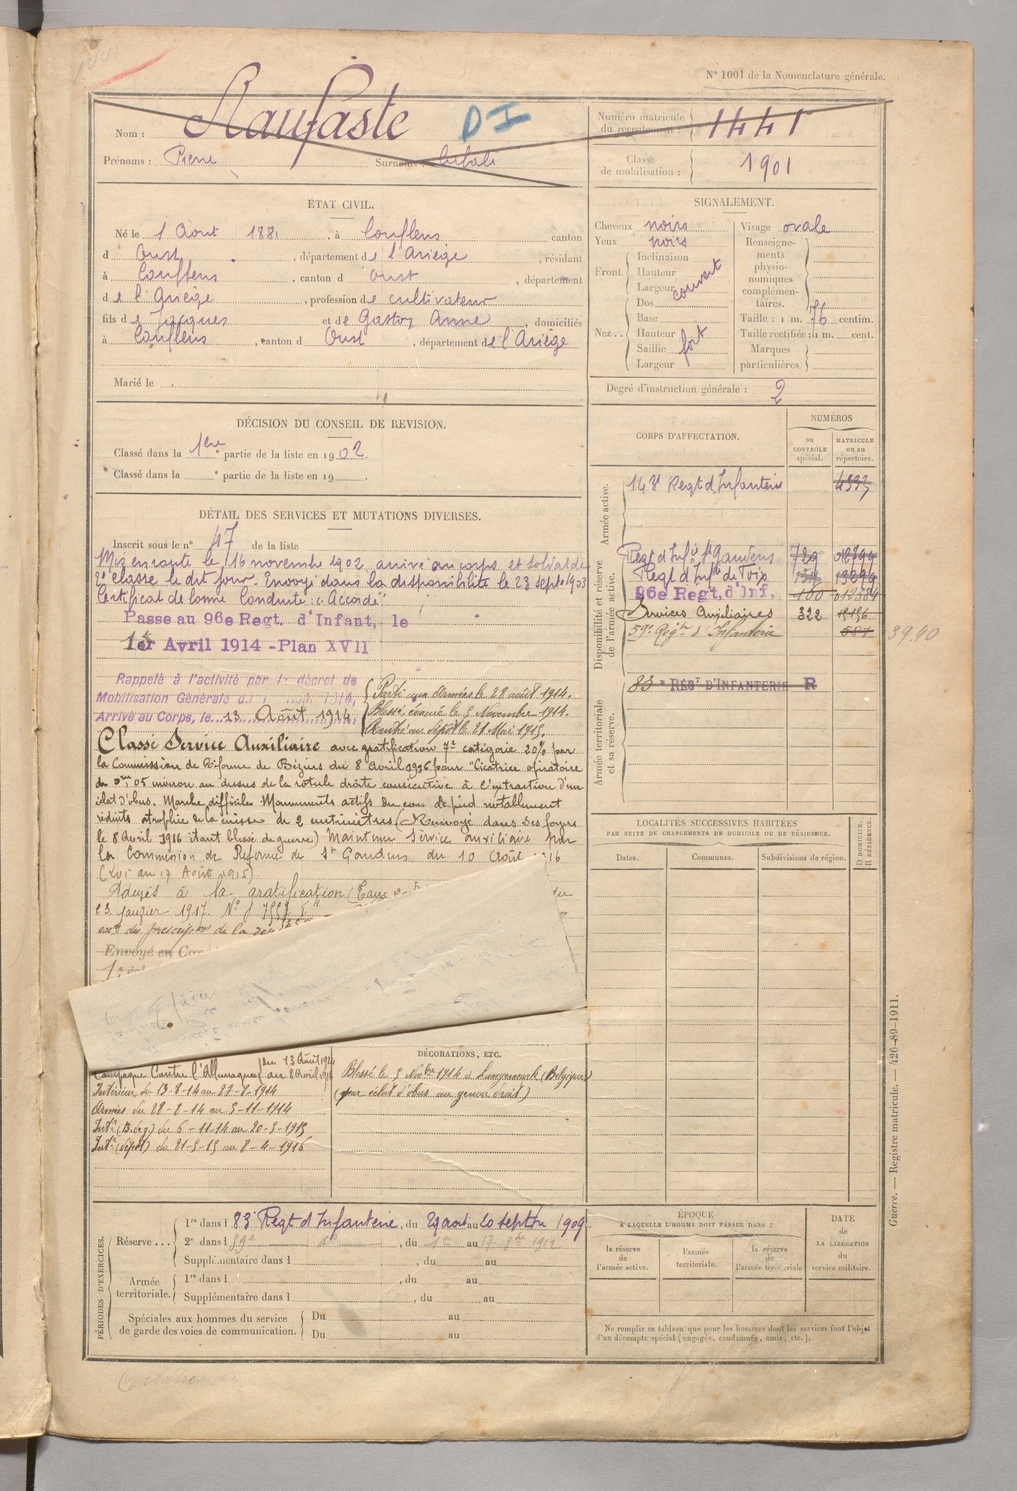 N° 1001 de la Nomenclature générale.
Nom : Naufaste
D I
Prénoms : Pierre Surnoms :
Numéro matricule du recrutement : 1441
Classe de mobilisation : 1901
ÉTAT CIVIL.
Né le 1 Aout 1881, à Couflens canton
d Oust, département de l'Ariège, résidant
à Couflens, canton d Oust, département
de l'Ariège, profession de cultivateur
fils de Jacques et de Gaston Anne, domiciliés
à Couflens, canton d Oust, département de l'Ariège
Marié le
SIGNALEMENT.
Cheveux noirs
Yeux noirs
Front. Inclinaison Hauteur Largeur couvert
Nez.. Dos Base Hauteur Saillie Largeur fort
Visage ovale
Renseignements physionomiques complémentaires.
Taille : 1 m. 76 centim.
Taille rectifiée : 1 m. cent.
Marques particulières.
Degré d'instruction générale : 2
DÉCISION DU CONSEIL DE REVISION.
Classé dans la 1ère partie de la liste en 1902.
Classé dans la e partie de la liste en 19
DÉTAIL DES SERVICES ET MUTATIONS DIVERSES.
Inscrit sous le n° 47 de la liste
Mis en route le 16 novembre 1902, arrivé au corps et soldat de
2e classe le dit jour. Envoyé dans la disponibilité le 23 sept 1903
Certificat de bonne Conduite : "Accordé"
Passe au 96e Regt. d'Infant, le
1er Avril 1914 - Plan XVII
Rappelé à l'activité par le décret de
Mobilisation Générale du 1914,
Arrivé au Corps, le 13 Août 1914
Parti aux Armées le 28 août 1914.
Blessé, évacué le 5 Novembre 1914.
Rentré au dépôt le 21 Mai 1915.
Classé Service Auxiliaire avec gratification 7e catégorie 20% par
la Commission de Réforme de Béziers du 8 Avril 1916 pour "Cicatrice opératoire
de 0m 05 environ au dessus de la rotule droite consécutive à l'extraction d'un
éclat d'obus. Marche difficile Mouvements actifs du cou de pied notablement
réduits atrophie de la cuisse de 2 centimètres (Renvoyé dans ses foyers
le 8 Avril 1916 étant blessé de guerre) Maintenu Service auxiliaire par
la Commission de Réforme de St Gaudens du 10 Août 1916
(Loi du 17 Août 1915).
Admis à la gratification
23 janvier 1917. N°
des prescriptions de la
Envoyé en
CORPS D'AFFECTATION.
NUMÉROS
au CONTRÔLE spécial.
MATRICULE ou au répertoire.
Armée active.
143e Regt d'Infanterie 4993
Disponibilité et réserve de l'armée active.
Regt d'Infie St Gaudens 729
Regt d'Infie de Foix
96e Regt, d'Inf. 100
Services Auxiliaires 322
59e Regt d'Infanterie 39.40
Armée territoriale et sa réserve.
83e RÉGT D'INFANTERIE R
LOCALITÉS SUCCESSIVES HABITÉES
PAR SUITE DE CHANGEMENTS DE DOMICILE OU DE RÉSIDENCE.
Dates. Communes. Subdivisions de région. D DOMICILE. R RÉSIDENCE.
Campagne Contre l'Allemagne du 13 Août 1914 au 8 Avril 1916
Intérieur du 13-8-14 au 27-8-1914
Armées du 28-8-14 au 5-11-1914
Intr (B. de g) du 6-11-14 au 20-5-1915
Intr (dépôt) du 21-5-15 au 8-4-1916
DÉCORATIONS, ETC.
Blessé le 5 Novbre 1914 à Langemarck (Belgique)
(par éclat d'obus au genou droit)
PÉRIODES D'EXERCICES.
Réserve... 1re dans l 83e Regt d'Infanterie, du 29 aout au 20 septbre 1909
2e dans l 59e do, du 1er au 17 8bre 1912
Supplémentaire dans l , du au
Armée territoriale. 1re dans l , du au
Supplémentaire dans l , du au
Spéciales aux hommes du service de garde des voies de communication. Du au
Du au
ÉPOQUE
À LAQUELLE L'HOMME DOIT PASSER DANS :
la réserve de l'armée active.
l'armée territoriale.
la réserve de l'armée territoriale
DATE DE LA LIBÉRATION du service militaire.
Ne remplir ce tableau que pour les hommes dont les services font l'objet
d'un décompte spécial (engagés, condamnés, omis, etc.).
Guerre. — Registre matricule. — 426-89-1911.